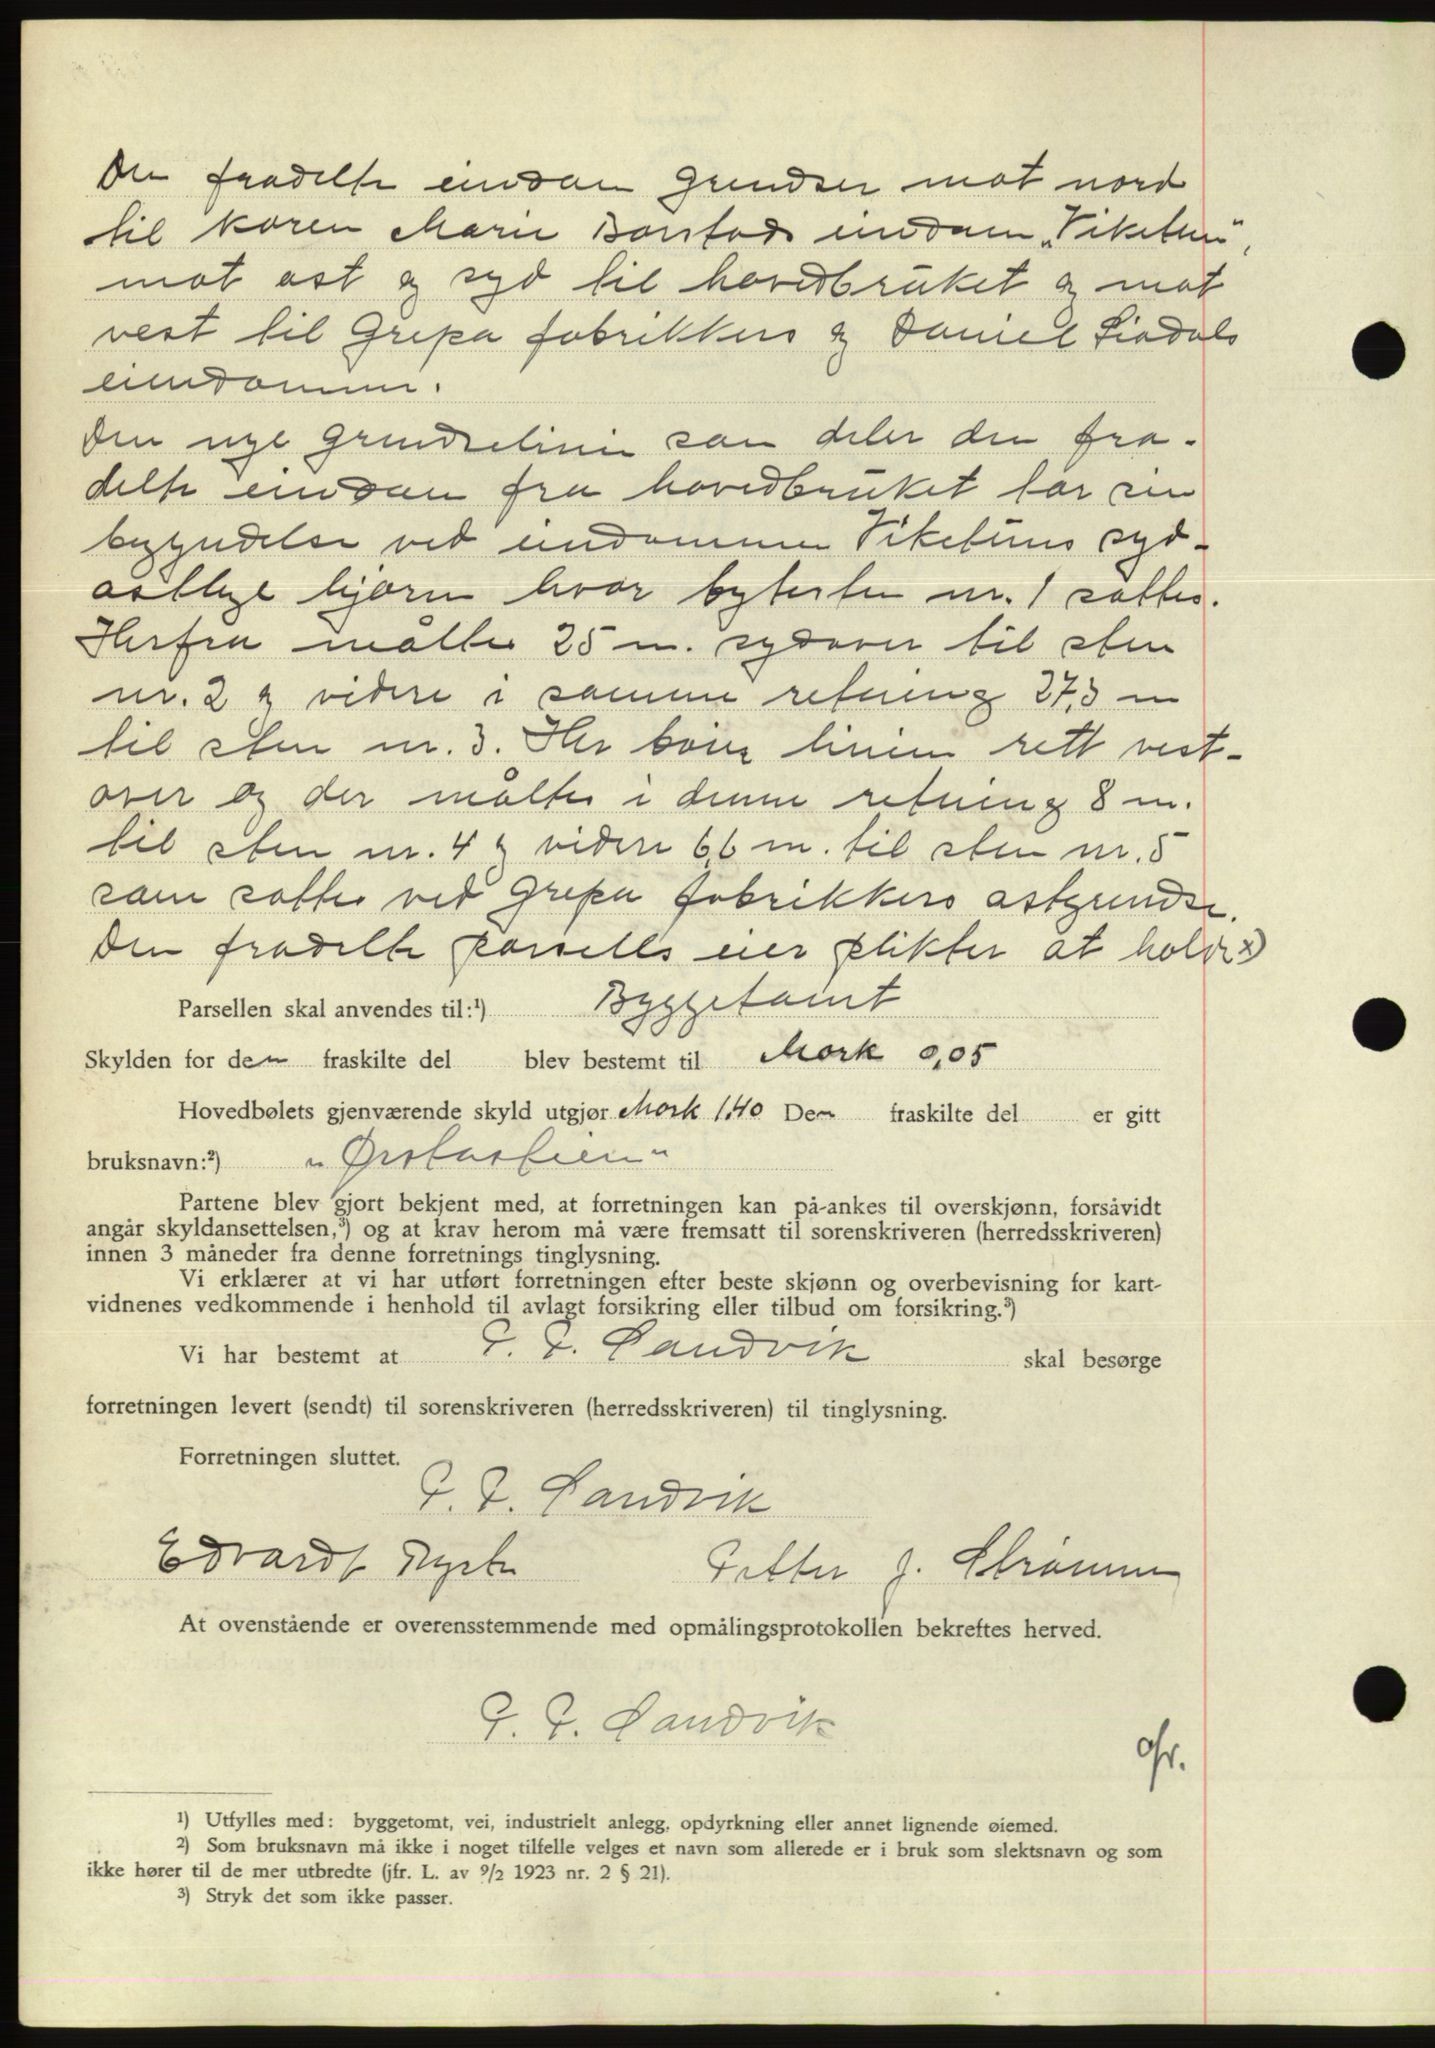 Den fradelte eiendom grendser mot nord
til Karen Marie Borstads eiendom „Viketun“,
mot øst og syd til hovedbruket og mot
vest til Grepa fabrikkers og Daniel Liadals
eiendommer.
Den nye grendselinie som deler den fra-
delte eiendom fra hovedbruket tar sin
begyndelse ved eiendommen Viketuns syd-
østlige hjørne hvor bytesten nr. 1 sattes.
Herfra måltes 25 m. sydover til sten
nr. 2 og videre i samme retning 27,3 m
til sten nr. 3. Her bøier linien rett vest-
over og der måltes i denne retning 8 m.
til sten nr. 4 og videre 6,6 m. til sten nr. 5
som sattes ved Grepa fabrikkers østgrendse.
Den fradelte parsells eier plikter at holde x)
Parsellen skal anvendes til:¹) Byggetomt
Skylden for den fraskilte del blev bestemt til Mark 0,05
Hovedbølets gjenværende skyld utgjør Mark 1,40 Den fraskilte del er gitt
bruksnavn:²) „Ørstasteien“
Partene blev gjort bekjent med, at forretningen kan på-ankes til overskjønn, forsåvidt
angår skyldansettelsen,³) og at krav herom må være fremsatt til sorenskriveren (herredsskriveren)
innen 3 måneder fra denne forretnings tinglysning.
Vi erklærer at vi har utført forretningen efter beste skjønn og overbevisning for kart-
vidnenes vedkommende i henhold til avlagt forsikring eller tilbud om forsikring.³)
Vi har bestemt at P. P. Sandvik skal besørge
forretningen levert (sendt) til sorenskriveren (herredsskriveren) til tinglysning.
Forretningen sluttet.
P. P. Sandvik
Edvardt Myrte Petter J. Strømme
At ovenstående er overensstemmende med opmålingsprotokollen bekreftes herved.
P. P. Sandvik
¹) Utfylles med: byggetomt, vei, industrielt anlegg, opdyrkning eller annet lignende øiemed.
²) Som bruksnavn må ikke i noget tilfelle velges et navn som allerede er i bruk som slektsnavn og som
ikke hører til de mer utbredte (jfr. L. av 9/2 1923 nr. 2 § 21).
³) Stryk det som ikke passer.